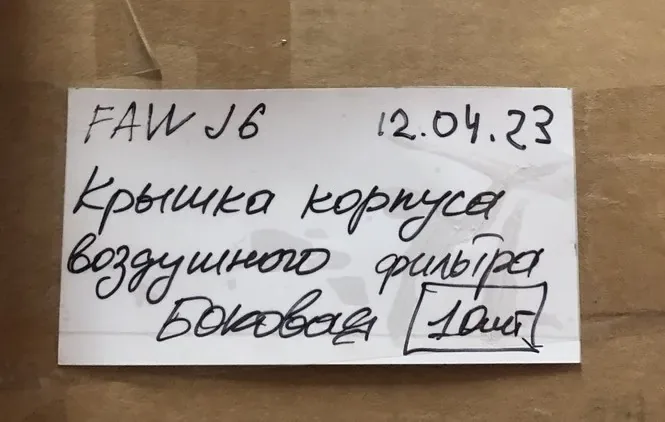 FAW J6 12.04.23
Крышка корпуса
воздушного фильтра
Боковая 10шт